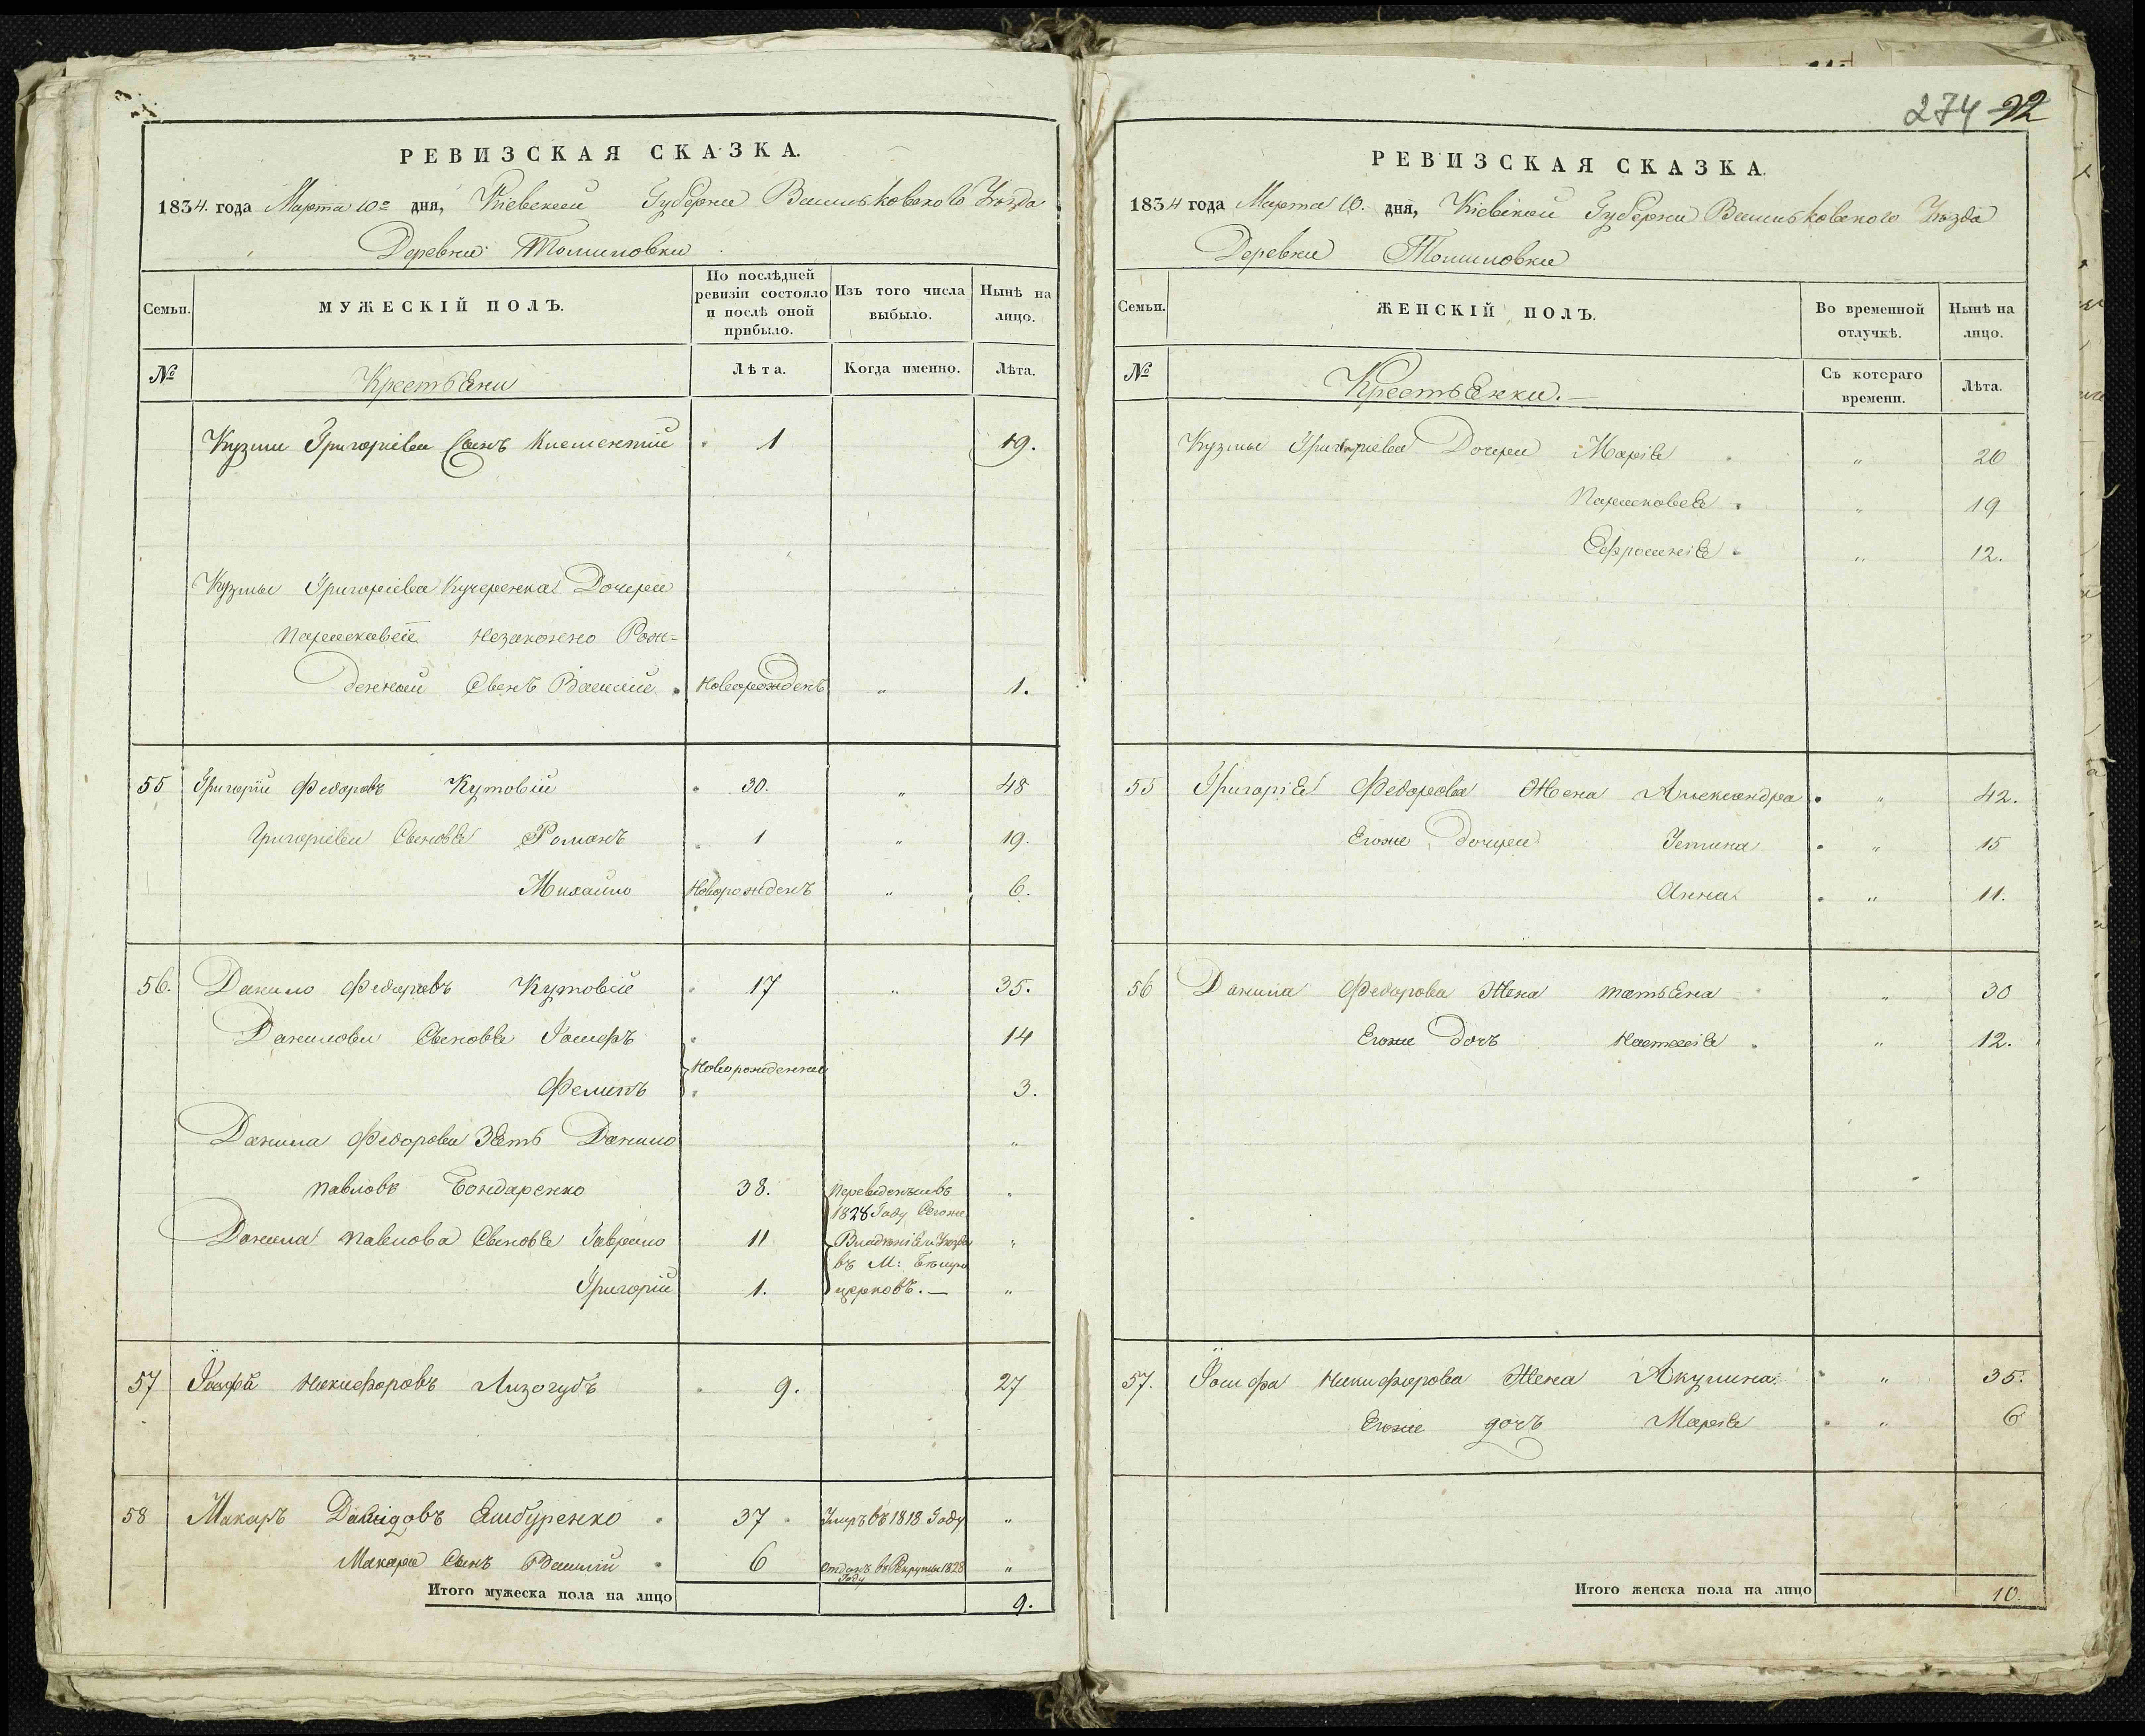 274 92
РЕВИЗСКАЯ СКАЗКА.
1834. года Марта 10го дня, Кіевской Губерни Васильковского Уезда
Деревни Томиловки
Семьи.
МУЖЕСКІЙ ПОЛЪ.
По послѣдней ревизіи состояло и послѣ оной прибыло.
Изъ того числа выбыло.
Нынѣ на лицо.
№
Крестьяни
Лѣта.
Когда именно.
Лѣта.
Кузми Григоріева Сынъ Климентий 1 19.
Кузмы Григоріева Кучеренка Дочери
Параскавеіе незаконно Рож-
денной Сынъ Василий Новорожденъ " 1.
55 Григорій Федоровъ Кутовій 30. " 48
Григоріеви Сыновя Романъ 1 " 19.
Михайло Новорожденъ " 6.
56. Данило Федоровъ Кутовіе 17 " 35.
Данилови Сыновя Іосифъ 14
Новорожденные
Филипъ 3.
Данила Федорови Зять Данило "
Павловъ Бондаренко 38. "
Переведенъ въ
1828 Году Сегоже
Данила Павлова Сыновя Гаврило 11 Владѣнія "
въ М: Бѣлую
Григорій 1. церковъ. — "
57 Никифоровъ Лизогубъ 9. 27
58 Макаръ Давидовъ 37 Умръ въ 1818 Году "
Макара Сынъ Василій 6 Отданъ въ Рекруты 1828 Году "
Итого мужеска пола на лицо 9.
РЕВИЗСКАЯ СКАЗКА.
1834 года Марта 10. дня, Кіевской Губерни Васильковского Уѣзда
Деревни Томиловки
Семьи.
ЖЕНСКІЙ ПОЛЪ.
Во временной отлучкѣ.
Нынѣ на лицо.
№
Крестьянки.—
Съ котораго времени.
Лѣта.
Кузмы Григоріева Дочери Марія " 20
Параскавея " 19
Ефросинія " 12.
55 Григорія Федорова Жена Александра " 42.
Егоже Дочери Устина " 15
Анна " 11.
56 Данила Федорова Жена Татьяна " 30
Егоже Дочъ Настасія " 12.
57. Іосифа Никифорова Жена Акулина " 35.
Егоже дочъ Марія " 6
Итого женска пола на лицо 10.